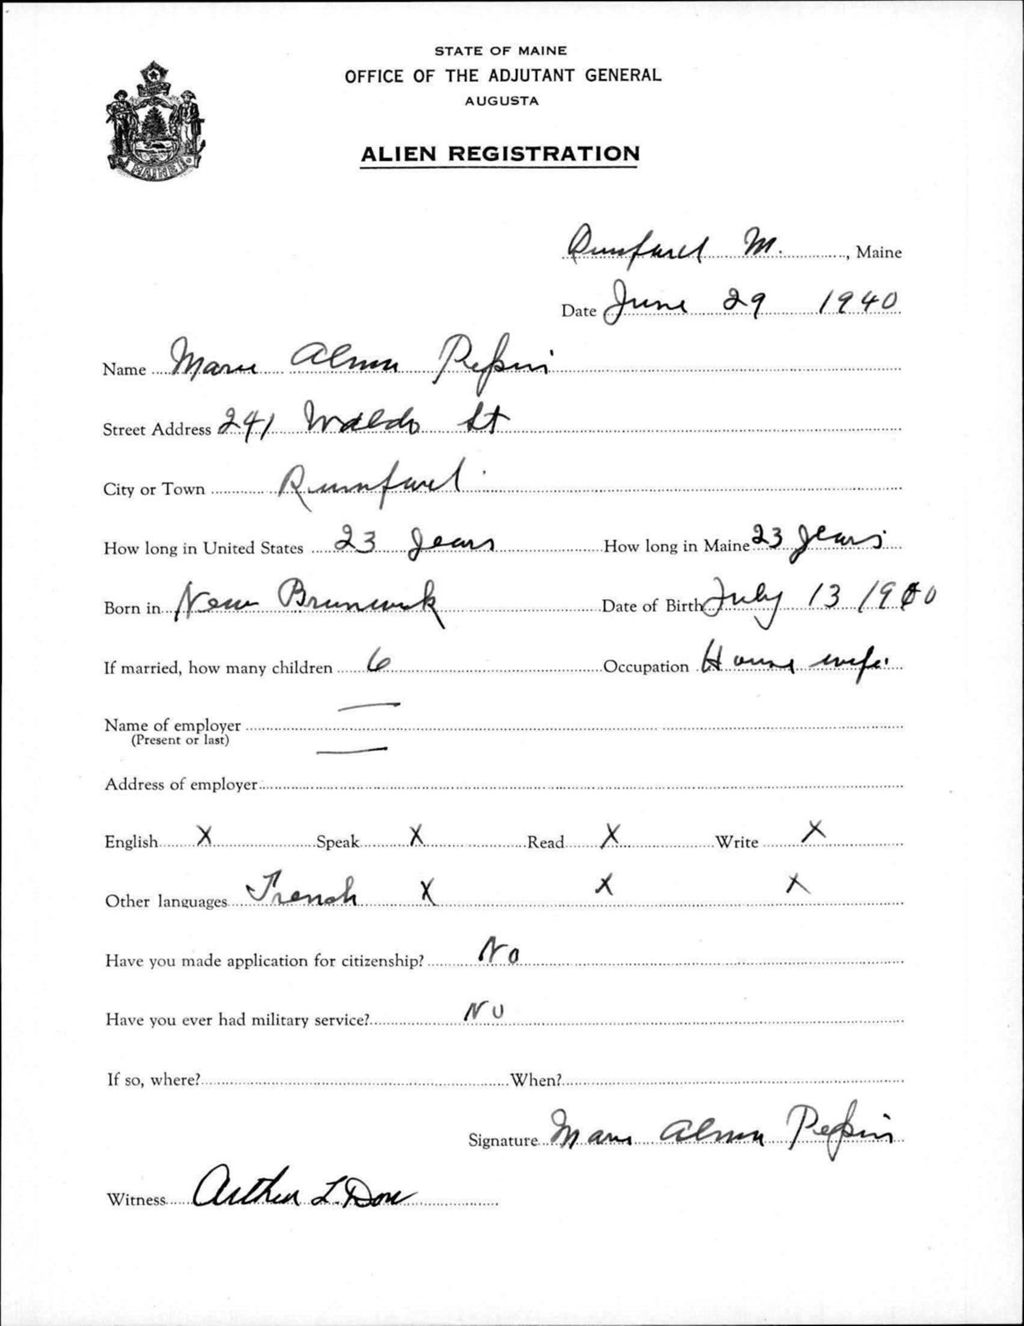 STATE OF MAINE
OFFICE OF THE ADJUTANT GENERAL
AUGUSTA
ALIEN REGISTRATION
MAINE
Rumford M. , Maine
Date June 29 1940
Name Marie Alma Pepin
Street Address 241 Waldo St
City or Town Rumford
How long in United States 23 years How long in Maine 23 years
Born in New Brunswick Date of Birth July 13 1900
If married, how many children 6 Occupation House wife
Name of employer
(Present or last)
Address of employer
English X Speak X Read X Write X
Other languages French X X X
Have you made application for citizenship? No
Have you ever had military service? No
If so, where? When?
Signature Marie Alma Pepin
Witness Arthur L. Dow